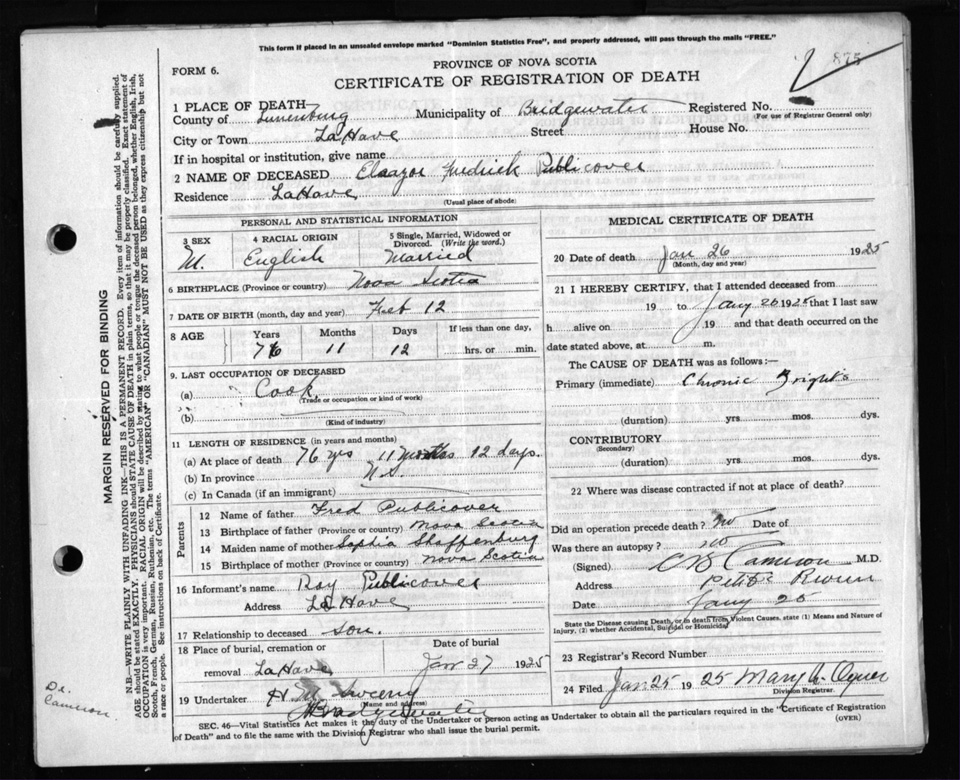 This form if placed in an unsealed envelope marked "Dominion Statistics Free", and properly addressed, will pass through the mails "FREE."
875
FORM 6.
PROVINCE OF NOVA SCOTIA
CERTIFICATE OF REGISTRATION OF DEATH
1 PLACE OF DEATH
County of Lunenburg Municipality of Bridgewater Registered No.
(For use of Registrar General only)
City or Town LaHave Street House No.
If in hospital or institution, give name
2 NAME OF DECEASED Fredrick Publicover
Residence LaHave
(Usual place of abode)
PERSONAL AND STATISTICAL INFORMATION
3 SEX 4 RACIAL ORIGIN 5 Single, Married, Widowed or Divorced. (Write the word.)
M. English Married
6 BIRTHPLACE (Province or country) Nova Scotia
7 DATE OF BIRTH (month, day and year) Feb 12
8 AGE Years Months Days If less than one day,
76 11 12 hrs. or min.
9. LAST OCCUPATION OF DECEASED
(a) Cook
(Trade or occupation or kind of work)
(b)
(Kind of industry)
11 LENGTH OF RESIDENCE (in years and months)
(a) At place of death 76 yrs 11 months 12 days.
(b) In province N.S.
(c) In Canada (if an immigrant)
Parents
12 Name of father Fred Publicover
13 Birthplace of father (Province or country) Nova Scotia
14 Maiden name of mother Sophia
15 Birthplace of mother (Province or country) Nova Scotia
16 Informant's name Roy Publicover
Address LaHave
17 Relationship to deceased son.
18 Place of burial, cremation or removal LaHave
Date of burial Jan 27 1925
19 Undertaker H M Sweeny
(Name and address)
Bridgewater
MEDICAL CERTIFICATE OF DEATH
20 Date of death Jan 26 1925
(Month, day and year)
21 I HEREBY CERTIFY, that I attended deceased from
19 to Jany 26 1925 that I last saw
h alive on 19 and that death occurred on the
date stated above, at m.
The CAUSE OF DEATH was as follows:—
Primary (immediate) Chronic Brights
(duration) yrs. mos. dys.
CONTRIBUTORY
(Secondary)
(duration) yrs. mos. dys.
22 Where was disease contracted if not at place of death?
Did an operation precede death? no Date of
Was there an autopsy? no
(Signed) Cameron M.D.
Address Petite Riviere
Date Jany 25
State the Disease causing Death, or in death from Violent Causes, state (1) Means and Nature of Injury, (2) whether Accidental, Suicidal or Homicidal
23 Registrar's Record Number
24 Filed Jan 25 1925 Mary
Division Registrar.
SEC. 46—Vital Statistics Act makes it the duty of the Undertaker or person acting as Undertaker to obtain all the particulars required in the "Certificate of Registration
of Death" and to file the same with the Division Registrar who shall issue the burial permit.
(OVER)
MARGIN RESERVED FOR BINDING
N.B.—WRITE PLAINLY WITH UNFADING INK—THIS IS A PERMANENT RECORD. Every item of information should be carefully supplied.
AGE should be stated EXACTLY. PHYSICIANS should STATE CAUSE OF DEATH in plain terms, so that it may be properly classified. Exact statement of
OCCUPATION is very important. RACIAL ORIGIN will be described by stating to what people or tongue the deceased person belonged, whether English, Irish,
Scotch, French, German, Russian, Ruthenian, etc. The terms "AMERICAN" OR "CANADIAN" MUST NOT BE USED as they express citizenship but not
a race or people. See instructions on back of Certificate.
Dr.
Cameron